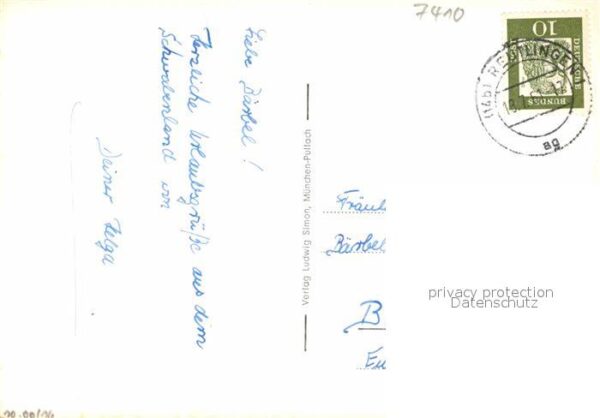 7410
10
DEUTSCHE
BUNDES
(14b) REUTLINGEN
ag
Liebe Bärbel!
Herzliche Urlaubsgrüße aus dem
Schwabenland von
Deiner Helga
Verlag Ludwig Simon, München-Pullach
Fräul
Bärbel
B
privacy protection
Datenschutz